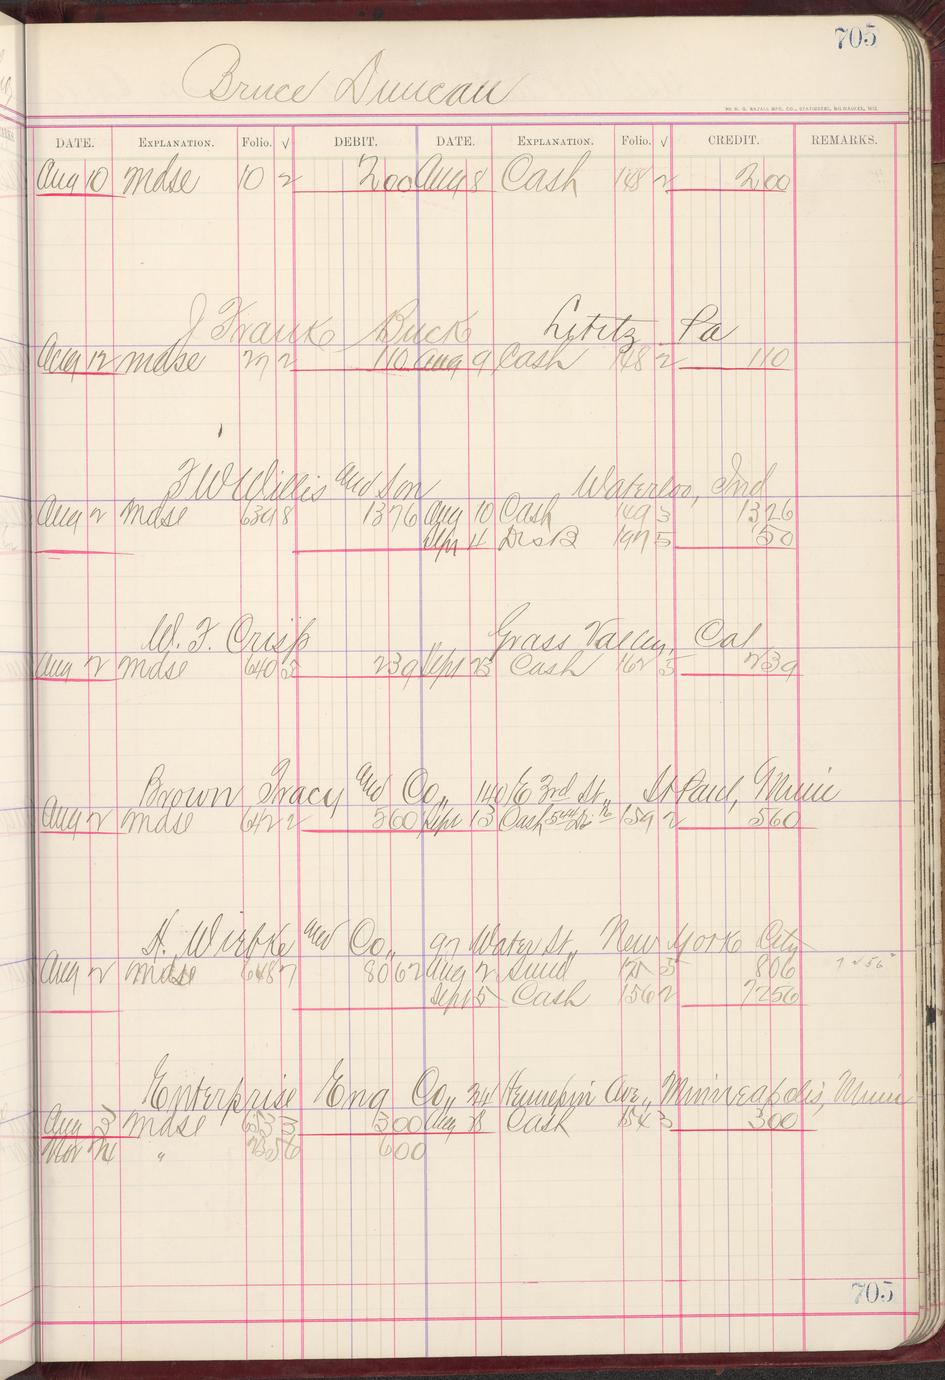 705
Bruce Duncan
DATE. EXPLANATION. Folio. √ DEBIT. DATE. EXPLANATION. Folio. √ CREDIT. REMARKS.
Aug 10 mdse 10 2 200 Aug 8 Cash 148 2 200
J Frank Buck Lititz Pa
Aug 12 mdse 27 2 110 Aug 9 Cash 148 2 110
F W Willis and Son Waterloo, Ind
Aug 2 mdse 639 8 1376 Aug 10 Cash 149 3 1326
Sept 4 Disct 197 5 50
W. F. Crisp Grass Valley, Cal
Aug 2 mdse 640 3 239 Sept 23 Cash 162 5 239
Brown Tracy and Co,, 140 E 3rd St,, St Paul, Minn
Aug 2 mdse 642 2 560 Sept 13 Cash 159 2 560
H. Wiebke and Co,, 97 Water St,, New York City
Aug 2 mdse 648 7 8062 Aug 2 Sund 5 806
Sept 5 Cash 156 2 7256
Enterprise Eng Co,, 24 Hennepin Ave,, Minneapolis, Minn
Aug 3 mdse 3 300 Aug 28 Cash 154 3 300
Nov 24 " 6 600
705